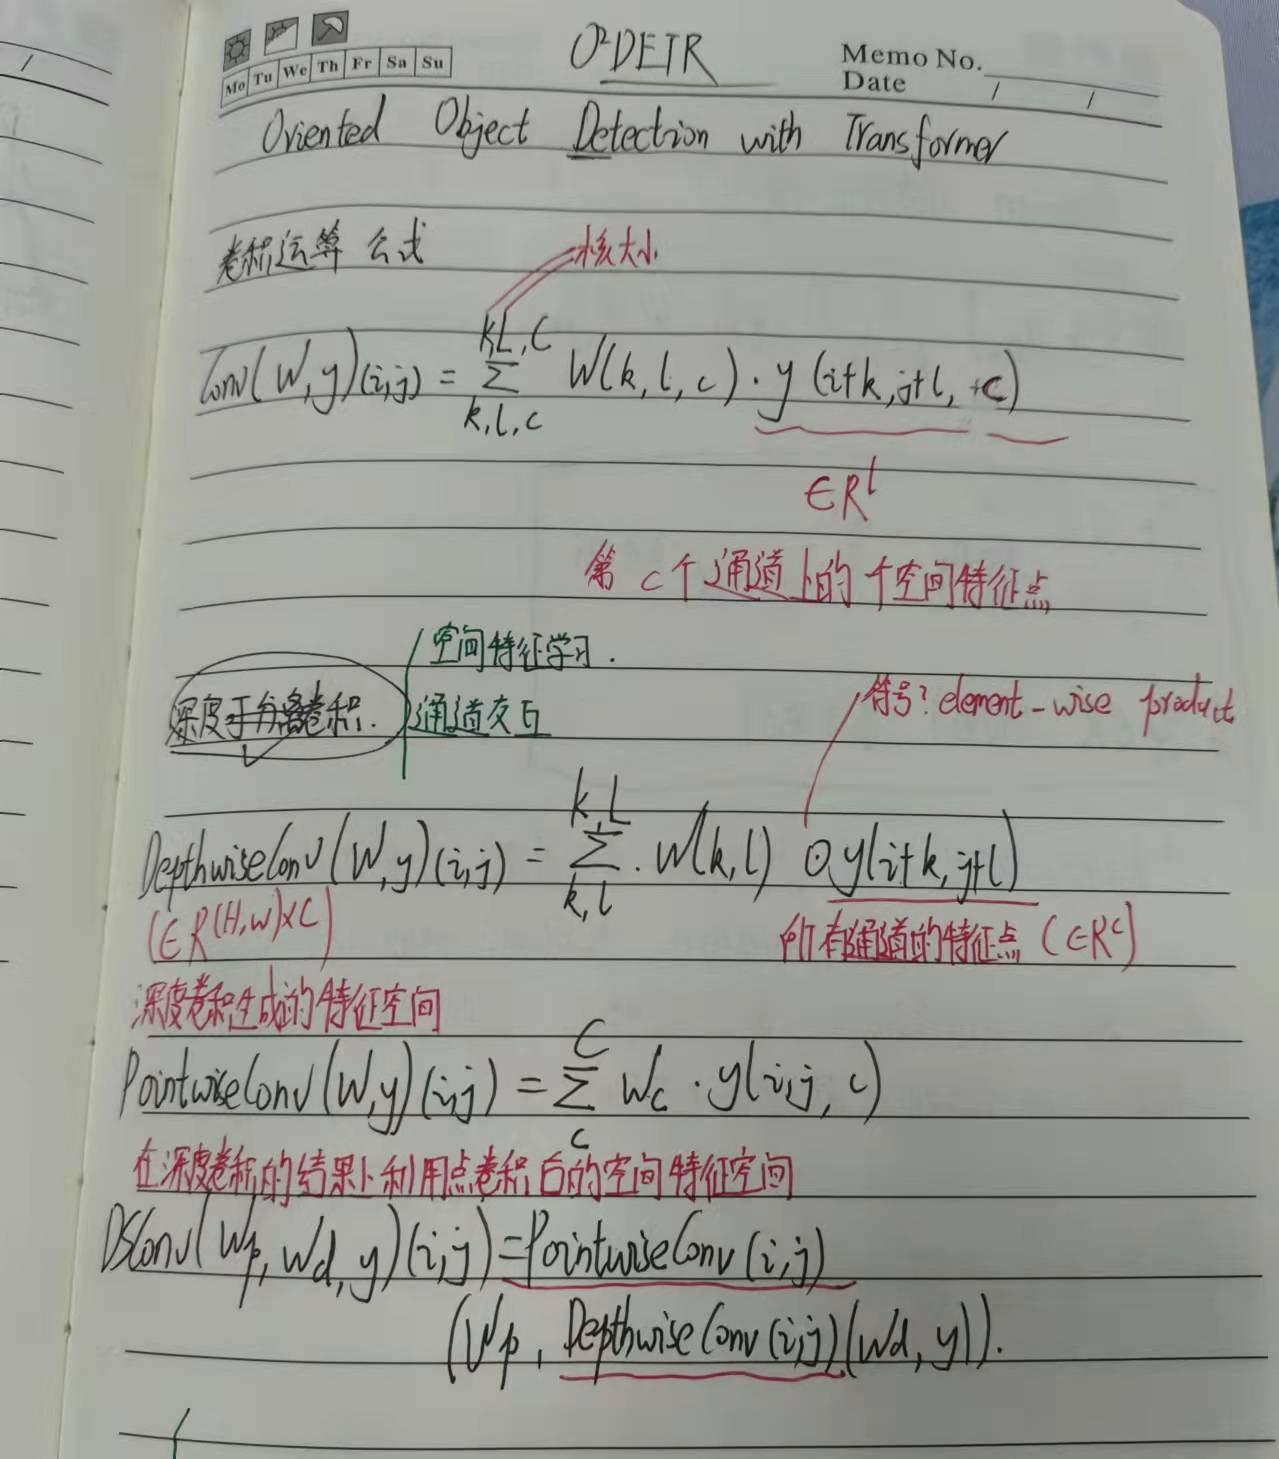 O²DETR
Memo No.
Mo Tu We Th Fr Sa Su
Date / /
Oriented Object Detection with Transformer
卷积运算 公式
核大小
K,L,C
Conv(W,y)(i,j) = Σ W(k,l,c)·y(i+k,j+l,+c)
k,l,c
∈R¹
第c个通道上的一个空间特征点
空间特征学习.
深度可分离卷积.
通道交互
符号? element-wise product
K,L
DepthwiseConv(W,y)(i,j) = Σ. W(k,l) ⊙ y(i+k,j+l)
k,l
(∈R(H,W)×C)
所有通道的特征点 (∈Rᶜ)
深度卷积生成的特征空间
C
PointwiseConv(W,y)(i,j) = Σ Wc·y(i,j,c)
c
在深度卷积的结果上利用点卷积后的空间特征空间
DSConv(Wp,Wd,y)(i,j)=PointwiseConv(i,j)
(Wp, DepthwiseConv(i,j)(Wd,y)).